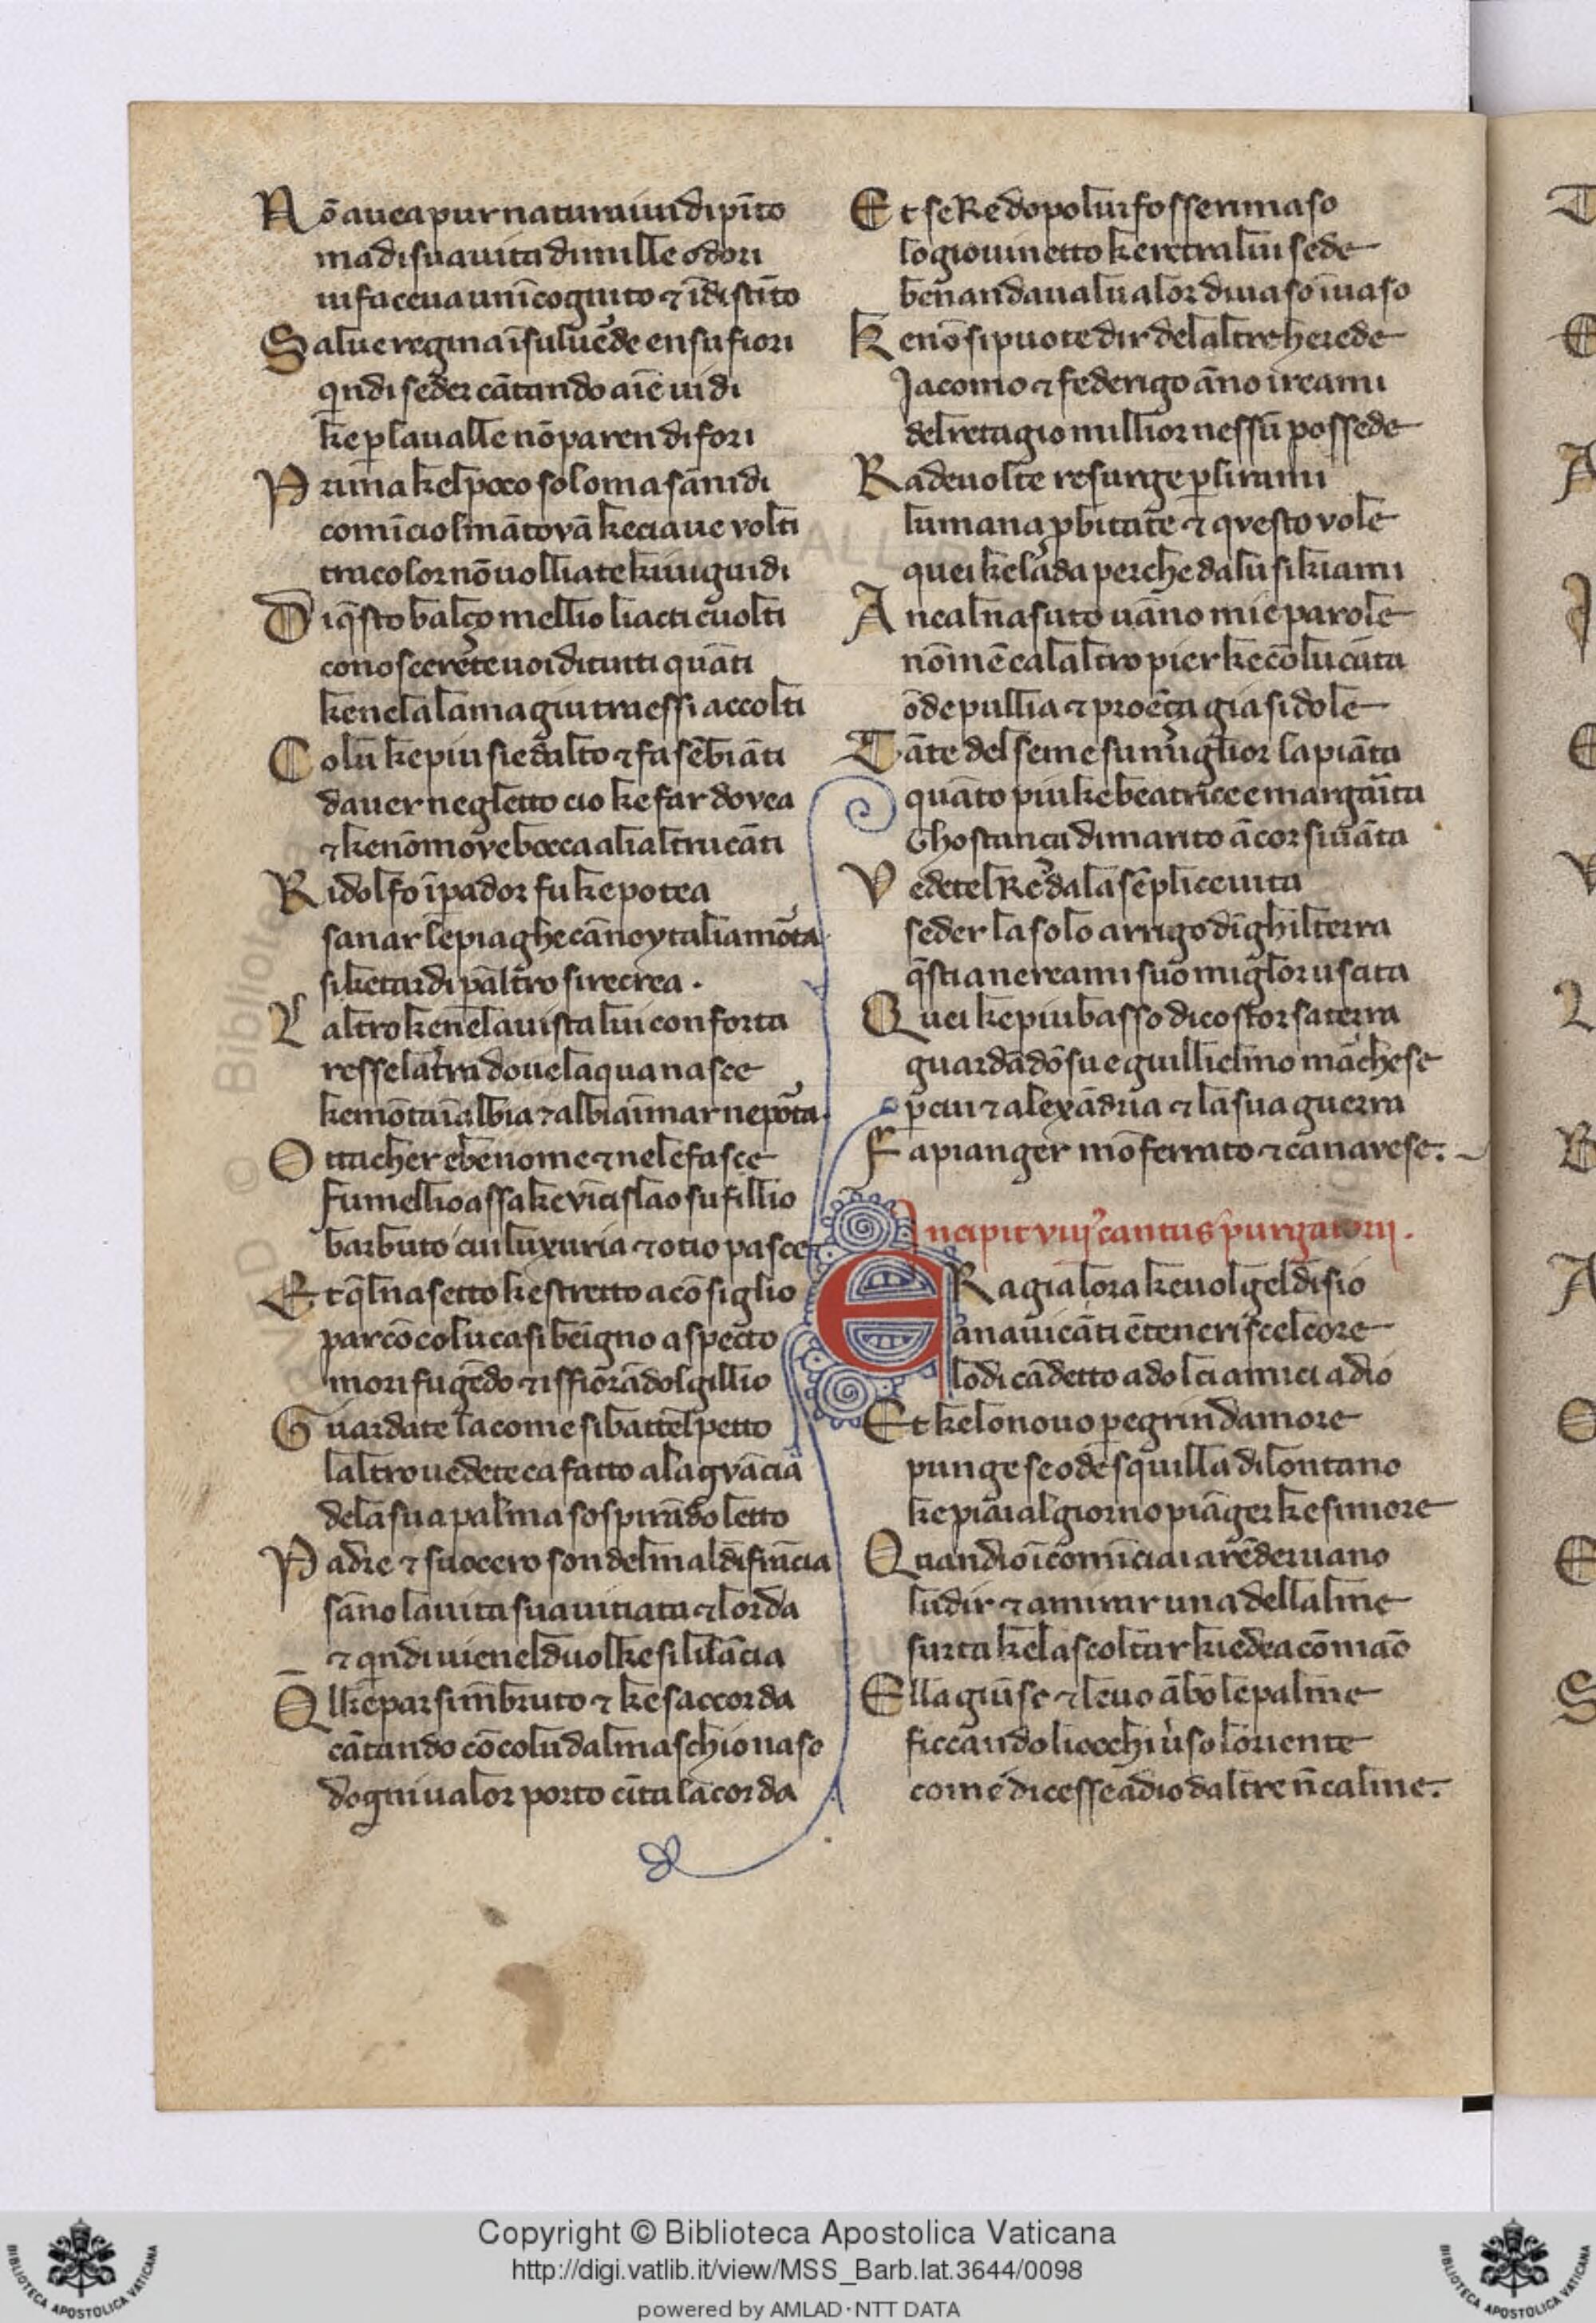 Nō auea pur natura iui dipīto
ma di suauita di mille odori
ui faceua un īcognito ⁊ īdistīto
Salue regina ī sul uēde en su fiori
qndi seder cātando aīe uidi
ke ꝑ la ualle nō paren di fori
Prima kel poco sole oma sanidi
comīcio l mātovā ke ci aue volti
tra color nō uolliate kiui guidi
Di q̄sto balço mellio li acti e uolti
conoscerete uoi di tutti quāti
ke ne la lama giu tra essi accolti
Colui ke piu sied alto ⁊ fa sēbiāti
dauer negletto cio ke far dovea
⁊ ke nō move bocca ali altrui cāti
Ridolfo īpador fu ke potea
sanar le piaghe cāno ytalia morta
si ke tardi ꝑ altro si recrea .
Laltro ke ne la uista lui conforta
resse la terra doue laqua nasce
ke mōta ī albia ⁊ albia ī mar ne porta.
Ottacher ebe nome ⁊ ne le fasce
fu mellio assa ke vīcislao su fillio
barbuto cui luxuria ⁊ otio pasce
Et ql nasetto ke stretto a cōsiglio
par cō colui ca si beigno aspecto
mori fugēdo ⁊ isfiorādol gillio
Guardate la come si battel petto
laltro uedete ca fatto ala gvācia
dela sua palma sospirādo letto
Padre ⁊ suocero son del mal di frācia
sāno la uita sua uitiata ⁊ lorda
⁊ qndi uiene l duol ke si li lācia
Ql ke par si mēbruto ⁊ ke saccorda
cātando cō colui dal maschio naso
dogni ualor porto cīta la corda
Et se Re dopo lui fosse rimaso
lo giouinetto ke retra lui sede
ben andaua lu alor di uaso ī uaso
Ke nō si puote dir de laltre herede
Jacomo ⁊ federigo āno i reami
del retagio millior nessū possede
Rade uolte resurge ꝑ li rami
lumana ꝓbitate ⁊ qvesto vole
quei ke la da perche da lui si kiami
Anc al nasuto uāno mie parole
nō mē cal altro pier ke cō lui cāta
ōde pullia ⁊ proēça gia si dole
Tāte del seme su miglior la piāta
quāto piu ke beatrice e margarita
Ghostanca di marito ācor si uāta
Vedetel Re dala sēplice uita
seder la solo arrigo dīghilterra
q̄sti a ne reami suo miglor uscita
Quei ke piu basso di costor saterra
guardādo su e guillielmo marchese
ꝑ cui ⁊ alexādria ⁊ la sua guerra
Fa pianger mōferrato ⁊ canavese .
Incipit viij cantus purgatorij .
ERa gia lora ke uolgel disio
a nauicāti ētenerisce l core
lo di cā detto a dolci amici adio
Et ke lo nouo pegrin damore
punge se ode squilla di lontano
ke piāial giorno piāger ke si more
Quandio īcomīciai a rēder uano
ludir ⁊ a mirar una dellalme
surta ke lascoltar kiedea cō māo
Ella giūse ⁊ leuo ābo le palme
ficcando li occhi u̓so loriente
come dicesse a dio daltre n̄ calme .
Copyright © Biblioteca Apostolica Vaticana
http://digi.vatlib.it/view/MSS_Barb.lat.3644/0098
powered by AMLAD·NTT DATA